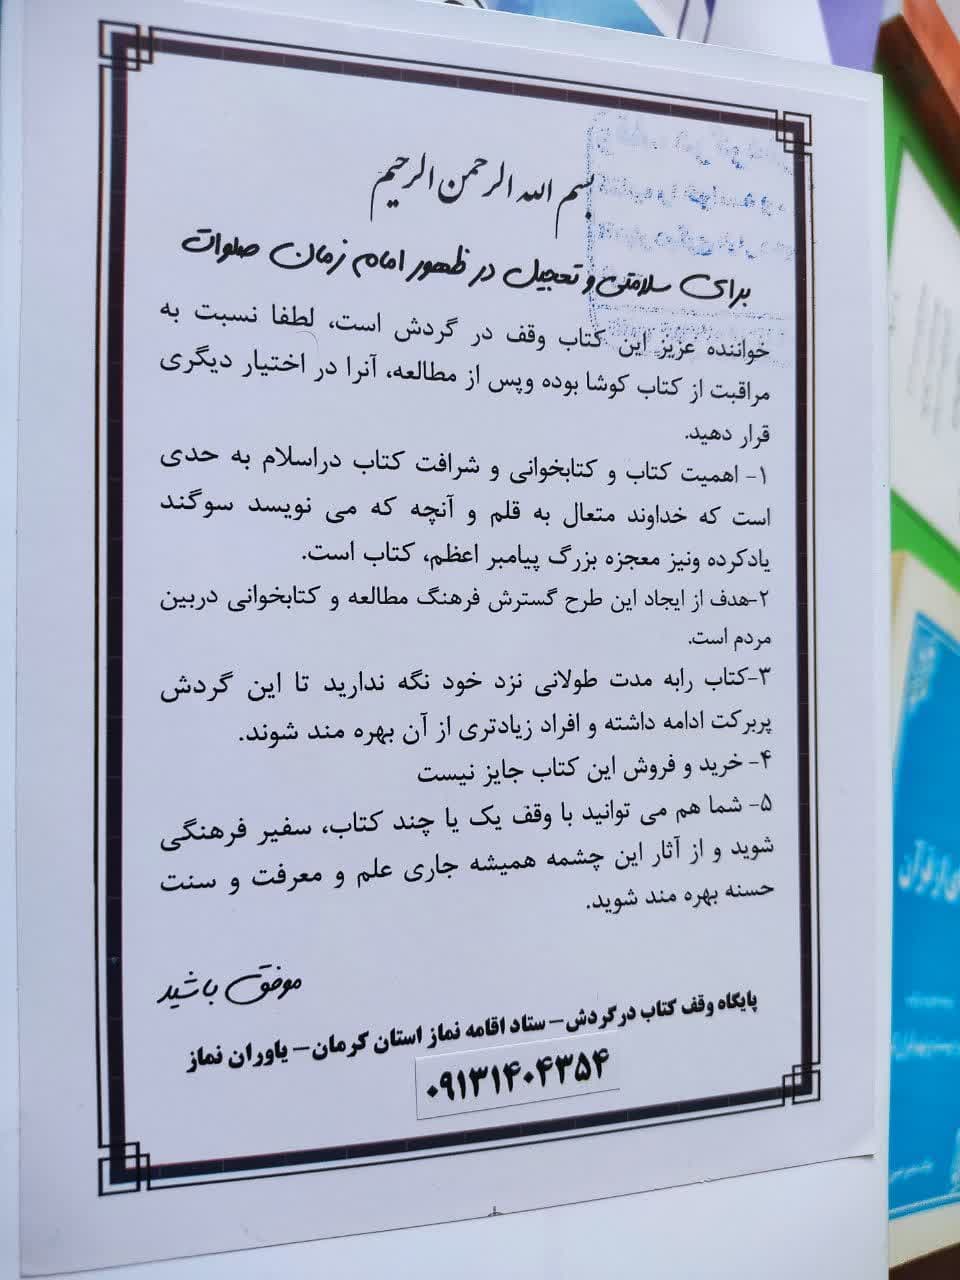 بسم الله الرحمن الرحیم
برای سلامتی و تعجیل در ظهور امام زمان صلوات
خواننده عزیز این کتاب وقف در گردش است، لطفا نسبت به
مراقبت از کتاب کوشا بوده وپس از مطالعه، آنرا در اختیار دیگری
قرار دهید.
۱- اهمیت کتاب و کتابخوانی و شرافت کتاب دراسلام به حدی
است که خداوند متعال به قلم و آنچه که می نویسد سوگند
یادکرده ونیز معجزه بزرگ پیامبر اعظم، کتاب است.
۲-هدف از ایجاد این طرح گسترش فرهنگ مطالعه و کتابخوانی دربین
مردم است.
۳-کتاب رابه مدت طولانی نزد خود نگه ندارید تا این گردش
پربرکت ادامه داشته و افراد زیادتری از آن بهره مند شوند.
۴- خرید و فروش این کتاب جایز نیست
۵- شما هم می توانید با وقف یک یا چند کتاب، سفیر فرهنگی
شوید و از آثار این چشمه همیشه جاری علم و معرفت و سنت
حسنه بهره مند شوید.
موفق باشید
پایگاه وقف کتاب درگردش- ستاد اقامه نماز استان کرمان- یاوران نماز
۰۹۱۳۱۴۰۴۳۵۴